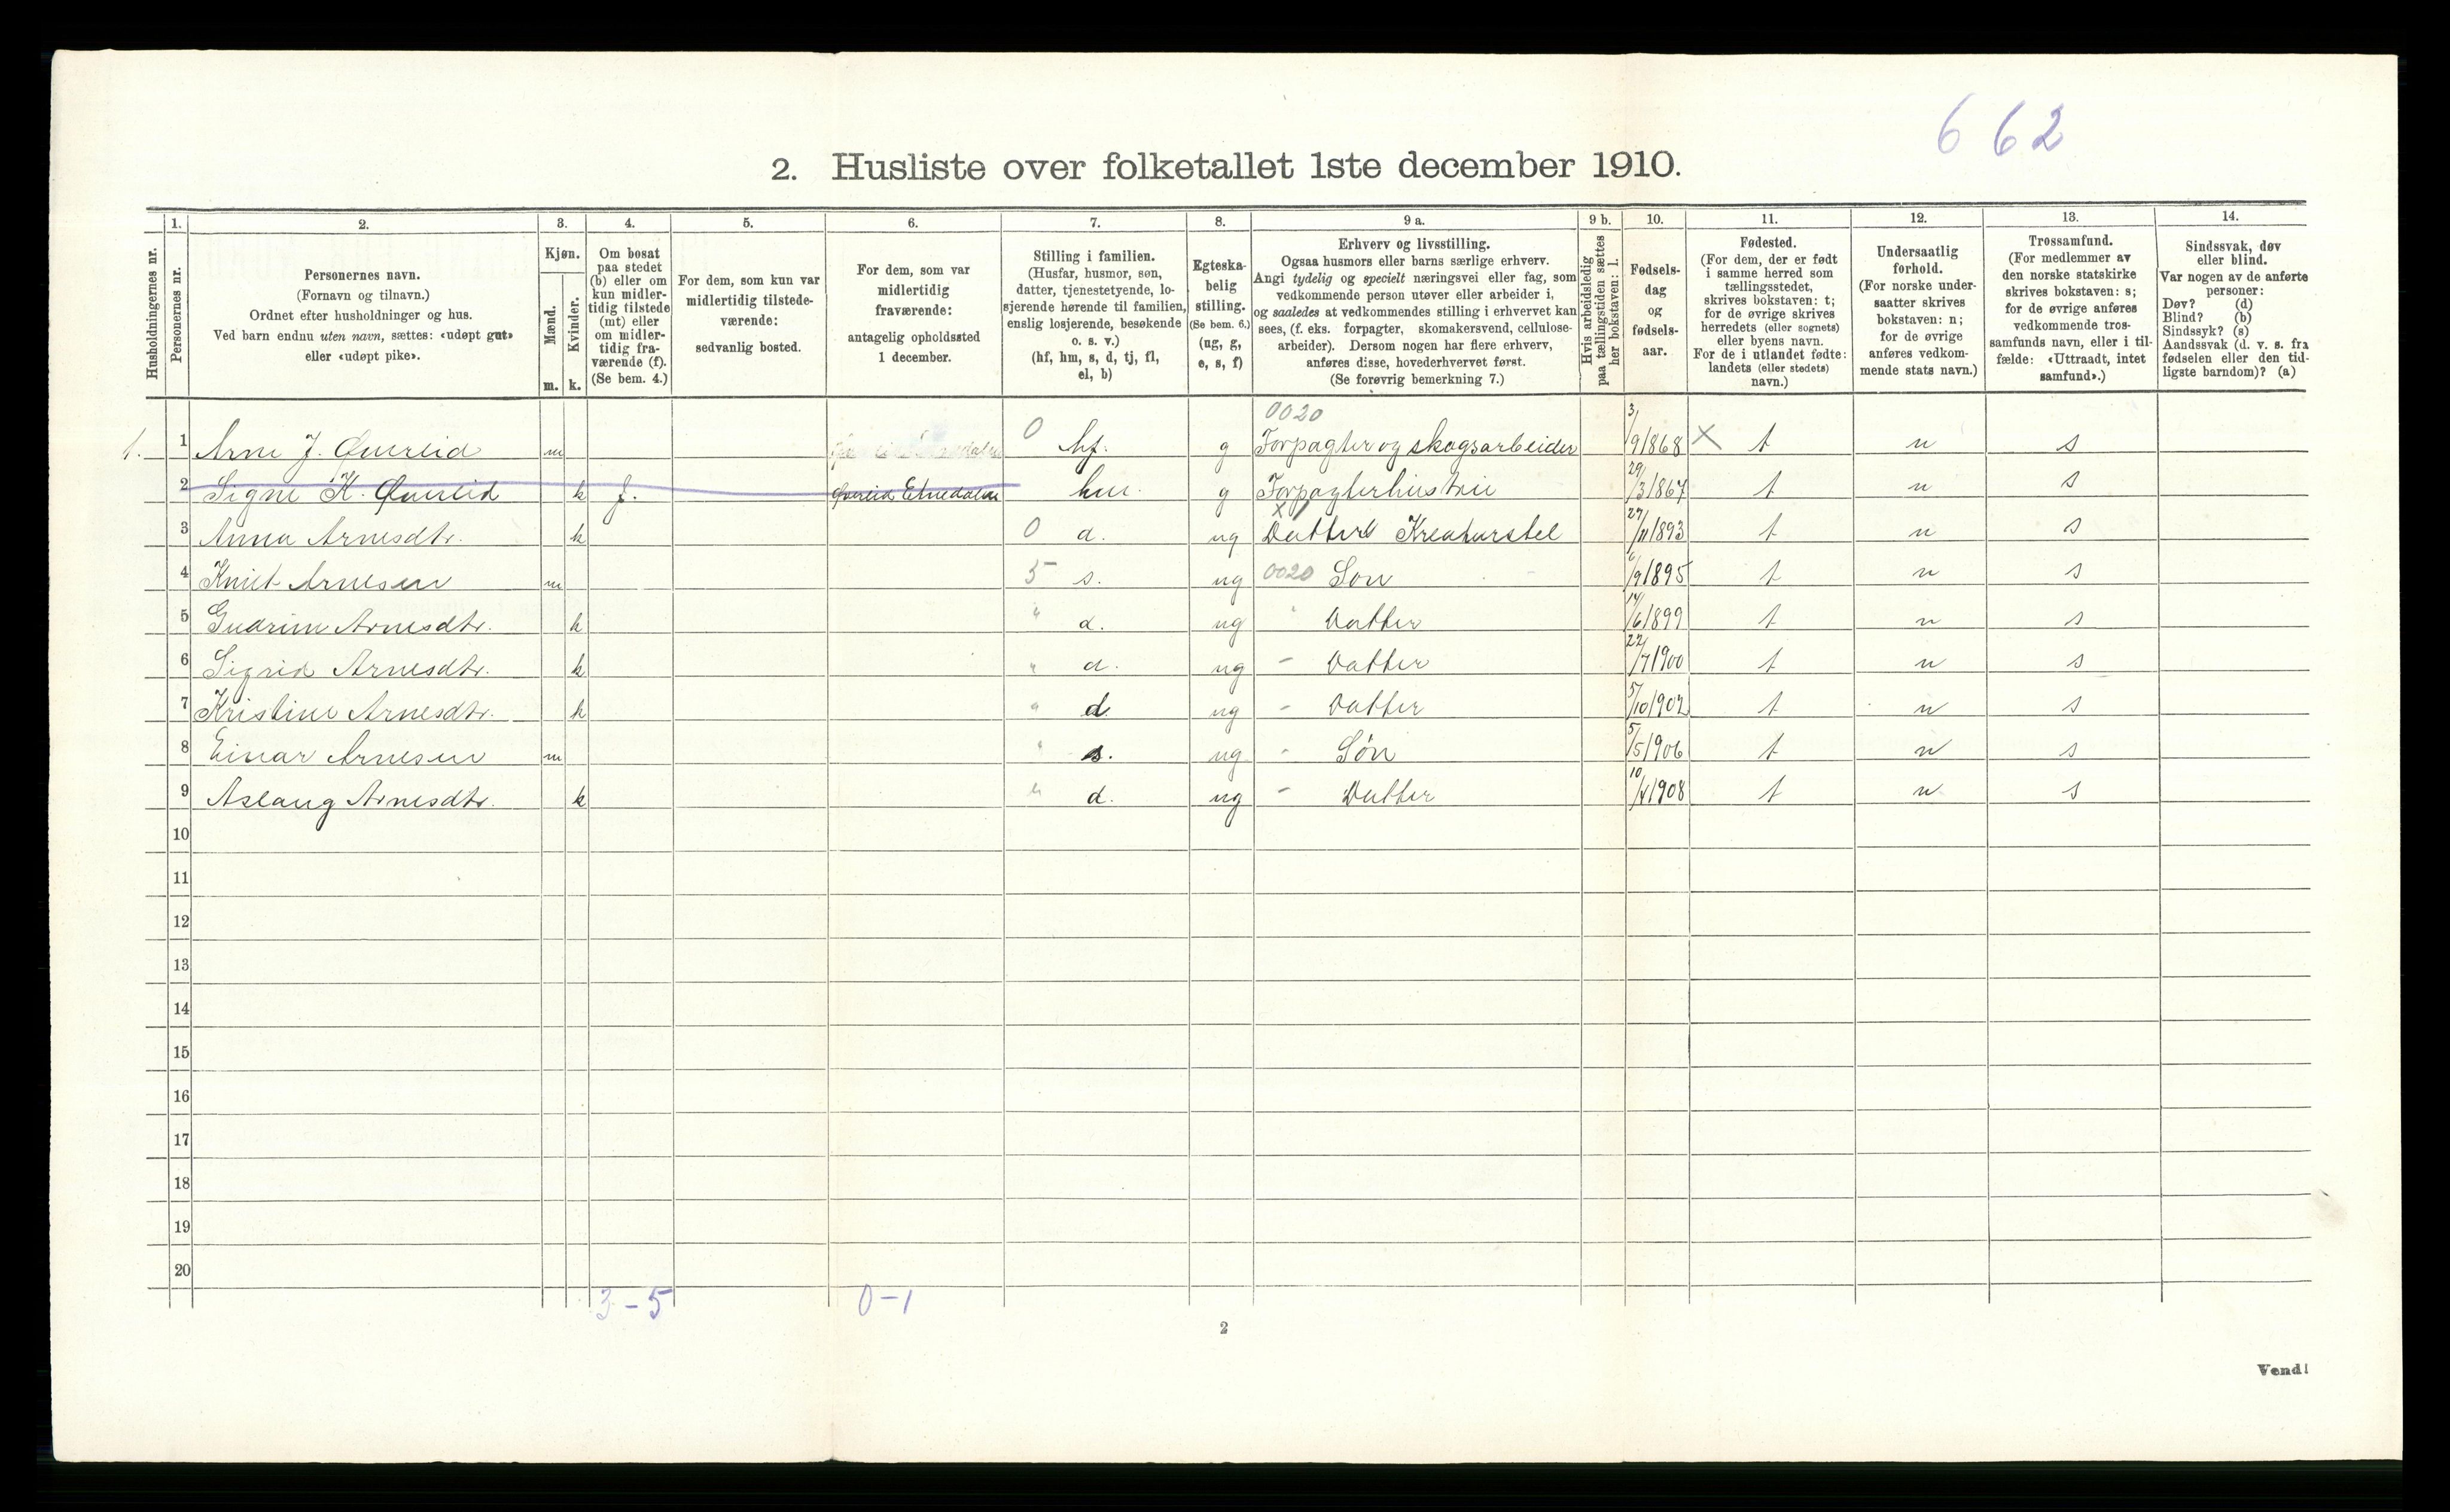 6 6 2
2. Husliste over folketallet 1ste december 1910.
1. 2. 3. 4. 5. 6. 7. 8. 9 a. 9 b. 10. 11. 12. 13. 14.
Husholdningernes nr.
Personernes nr.
Personernes navn.
(Fornavn og tilnavn.)
Ordnet efter husholdninger og hus.
Ved barn endnu uten navn, sættes: «udøpt gut»
eller «udøpt pike».
Kjøn.
Mænd.
Kvinder.
m. k.
Om bosat
paa stedet
(b) eller om
kun midler-
tidig tilstede
(mt) eller
om midler-
tidig fra-
værende (f).
(Se bem. 4.)
For dem, som kun var
midlertidig tilstede-
værende:
sedvanlig bosted.
For dem, som var
midlertidig
fraværende:
antagelig opholdssted
1 december.
Stilling i familien.
(Husfar, husmor, søn,
datter, tjenestetyende, lo-
sjerende hørende til familien,
enslig losjerende, besøkende
o. s. v.)
(hf, hm, s, d, tj, fl,
el, b)
Egteska-
belig
stilling.
(Se bem. 6.)
(ug, g,
e, s, f)
Erhverv og livsstilling.
Ogsaa husmors eller barns særlige erhverv.
Angi tydelig og specielt næringsvei eller fag, som
vedkommende person utøver eller arbeider i,
og saaledes at vedkommendes stilling i erhvervet kan
sees, (f. eks. forpagter, skomakersvend, cellulose-
arbeider). Dersom nogen har flere erhverv,
anføres disse, hovederhvervet først.
(Se forøvrig bemerkning 7.)
Hvis arbeidsledig
paa tællingstiden sættes
her bokstaven: l.
Fødsels-
dag
og
fødsels-
aar.
Fødested.
(For dem, der er født
i samme herred som
tællingsstedet,
skrives bokstaven: t;
for de øvrige skrives
herredets (eller sognets)
eller byens navn.
For de i utlandet fødte:
landets (eller stedets)
navn.)
Undersaatlig
forhold.
(For norske under-
saatter skrives
bokstaven: n;
for de øvrige
anføres vedkom-
mende stats navn.)
Trossamfund.
(For medlemmer av
den norske statskirke
skrives bokstaven: s;
for de øvrige anføres
vedkommende tros-
samfunds navn, eller i til-
fælde: «Uttraadt, intet
samfund».)
Sindssvak, døv
eller blind.
Var nogen av de anførte
personer:
Døv? (d)
Blind? (b)
Sindssyk? (s)
Aandssvak (d. v. s. fra
fødselen eller den tid-
ligste barndom)? (a)
0020
1. 1 Arne J. Øvereid m 0 hf. g Forpagter og skogsarbeider 3/9 1868 X t n s
2 Signe K. Øvereid k f. Øvereid Etnedalen hm. g Forpagterhustru 29/3 1867 t n s
3 Anna Arnesdtr. k 0 d. ug Datter Kreaturstel 27/11 1893 t n s
4 Knut Arnesen m 5 s. ug 0020 Søn 6/9 1895 t n s
5 Gudrun Arnesdtr. k " d. ug " Datter 14/6 1899 t n s
6 Sigrid Arnesdtr. k " d. ug - Datter 22/7 1900 t n s
7 Kristine Arnesdtr. k " d. ug - Datter 5/10 1902 t n s
8 Einar Arnesen m " s. ug - Søn 5/5 1906 t n s
9 Aslaug Arnesdtr. k " d. ug - Datter 10/4 1908 t n s
10
11
12
13
14
15
16
17
18
19
20
3 - 5 0 - 1
2
Vend!